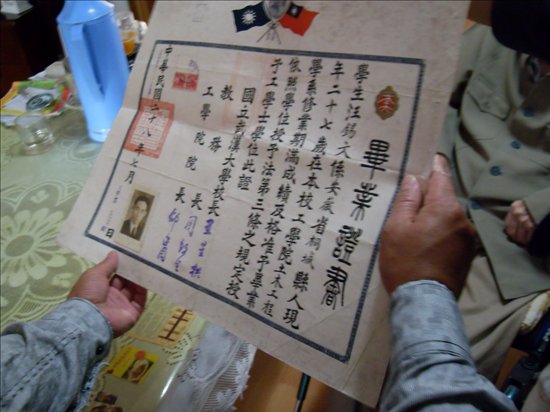 畢業證書
學生汪錫文係安徽省桐城縣人現
年二十七歲在本校工學院土木工程
學系修業期滿成績及格准予畢業
依照學位授予法第三條之規定授
予工學士學位此證
國立武漢大學校長王星拱
教務長周鯁生
工學院院長
中華民國二十八年七月日